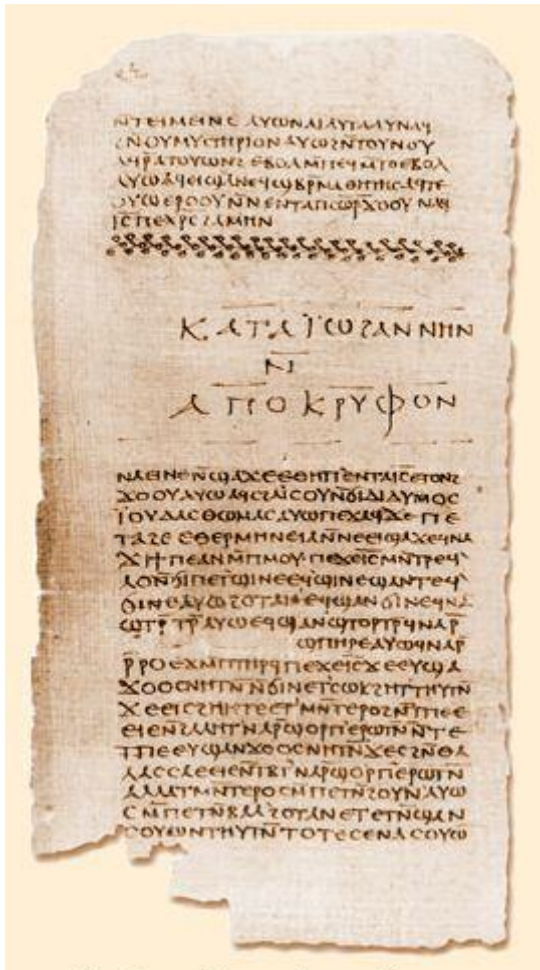 ⲛⲧⲉⲓⲙⲉⲓⲛⲉ ⲁⲩⲱ ⲛⲁⲓ ⲁⲩⲧⲁⲁⲩ ⲛⲁϥ
ϩⲛⲟⲩⲙⲩⲥⲧⲏⲣⲓⲟⲛ ⲁⲩⲱ ϩⲛ̄ ⲧⲟⲩⲛⲟⲩ
ⲁϥⲣ̄ⲁⲧⲟⲩⲱⲛϩ ⲉⲃⲟⲗ ⲙ̄ⲡⲉϥⲙ̄ⲧⲟ ⲉⲃⲟⲗ
ⲁⲩⲱ ⲁϥⲉⲓ ϣⲁ ⲛⲉϥϣⲃⲣ̄ⲙⲁⲑⲏⲧⲏⲥ ⲁϥⲧⲉ
ⲟⲩⲱ ⲉⲣⲟⲟⲩ ⲛ̄ⲛⲉⲛⲧⲁⲡⲥⲱⲣ̄ ϫⲟⲟⲩ ⲛⲁϥ
ⲓ̄ⲥ̄ ⲡⲉⲭ̄ⲣ̄ⲥ̄ ϩⲁⲙⲏⲛ
ⲕⲁⲧⲁ ⲓ̈ⲱϩⲁⲛⲛⲏⲛ
ⲛ̄
ⲁⲡⲟⲕⲣⲩⲫⲟⲛ
ⲛⲁⲉⲓ ⲛⲉ ⲛ̄ϣⲁϫⲉ ⲉⲑⲏⲡ ⲉⲛⲧⲁⲓ̄ⲥ̄ ⲉⲧⲟⲛϩ
ϫⲟⲟⲩ ⲁⲩⲱ ⲁϥⲥϩⲁⲓ̈ⲥⲟⲩ ⲛ̄ϭⲓ ⲇⲓⲇⲩⲙⲟⲥ
ⲓ̈ⲟⲩⲇⲁⲥ ⲑⲱⲙⲁⲥ ⲁⲩⲱ ⲡⲉϫⲁϥ ϫⲉ ⲡⲉ
ⲧⲁϩⲉ ⲉⲑⲉⲣⲙⲏⲛⲉⲓⲁ ⲛ̄ⲛⲉⲉⲓϣⲁϫⲉ ϥⲛⲁ
ϫⲓ ϯⲡⲉ ⲁⲛ ⲙ̄ⲡⲙⲟⲩ ⲡⲉϫⲉ ⲓ̄ⲥ̄ ⲙⲛ̄ⲧⲣⲉϥ
ⲗⲟ ⲛ̄ϭⲓ ⲡⲉⲧϣⲓⲛⲉ ⲉϥϣⲓⲛⲉ ϣⲁⲛⲧⲉϥ
ϭⲓⲛⲉ ⲁⲩⲱ ϩⲟⲧⲁⲛ ⲉϥϣⲁⲛϭⲓⲛⲉ ϥⲛⲁ
ϣⲧⲣ̄ⲧⲣ̄ ⲁⲩⲱ ⲉϥϣⲁⲛϣⲧⲟⲣⲧⲣ̄ ϥⲛⲁⲣ̄
ϣⲡⲏⲣⲉ ⲁⲩⲱ ϥⲛⲁⲣ̄
ⲣ̄ⲣⲟ ⲉϫⲙ̄ ⲡⲧⲏⲣϥ ⲡⲉϫⲉ ⲓ̄ⲥ̄ ϫⲉ ⲉⲩϣⲁ
ϫⲟⲟⲥ ⲛⲏⲧⲛ̄ ⲛ̄ϭⲓ ⲛⲉⲧⲥⲱⲕ ϩⲏⲧ ⲧⲏⲩⲧⲛ̄
ϫⲉ ⲉⲓⲥϩⲏⲏⲧⲉ ⲉⲧⲙⲛ̄ⲧⲉⲣⲟ ϩⲛ̄ ⲧⲡⲉ ⲉ
ⲉⲓⲉ ⲛ̄ϩⲁⲗⲏⲧ ⲛⲁⲣ̄ ϣⲟⲣⲡ ⲉⲣⲱⲧⲛ̄ ⲛ̄ⲧⲉ
ⲧⲡⲉ ⲉⲩϣⲁⲛϫⲟⲟⲥ ⲛⲏⲧⲛ̄ ϫⲉ ⲥϩⲛ̄ ⲑⲁ
ⲗⲁⲥⲥⲁ ⲉⲉⲓⲉ ⲛ̄ⲧⲃⲧ ⲛⲁⲣ̄ ϣⲟⲣⲡ ⲉⲣⲱⲧⲛ̄
ⲁⲗⲗⲁ ⲧⲙⲛ̄ⲧⲉⲣⲟ ⲥⲙ̄ⲡⲉⲧⲛ̄ϩⲟⲩⲛ ⲁⲩⲱ
ⲥⲙ̄ⲡⲉⲧⲛ̄ⲃⲁⲗ ϩⲟⲧⲁⲛ ⲉⲧⲉⲧⲛ̄ϣⲁⲛ
ⲥⲟⲩⲱⲛ ⲧⲏⲩⲧⲛ̄ ⲧⲟⲧⲉ ⲥⲉⲛⲁⲥⲟⲩⲱ